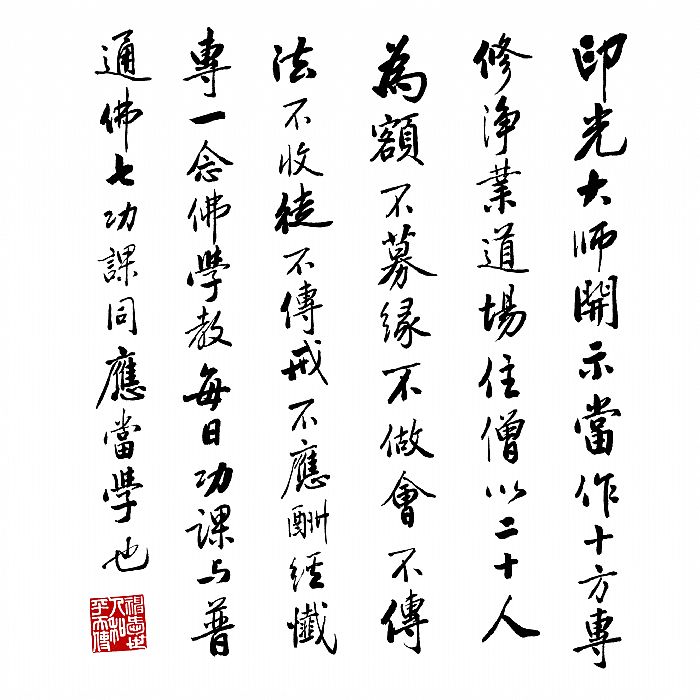 印光大师開示當作十方專
修淨業道場住僧以二十人
為額不募緣不做會不傳
法不收徒不傳戒不應酬經懺
專一念佛學教每日功課与普
通佛七功課同應當学也